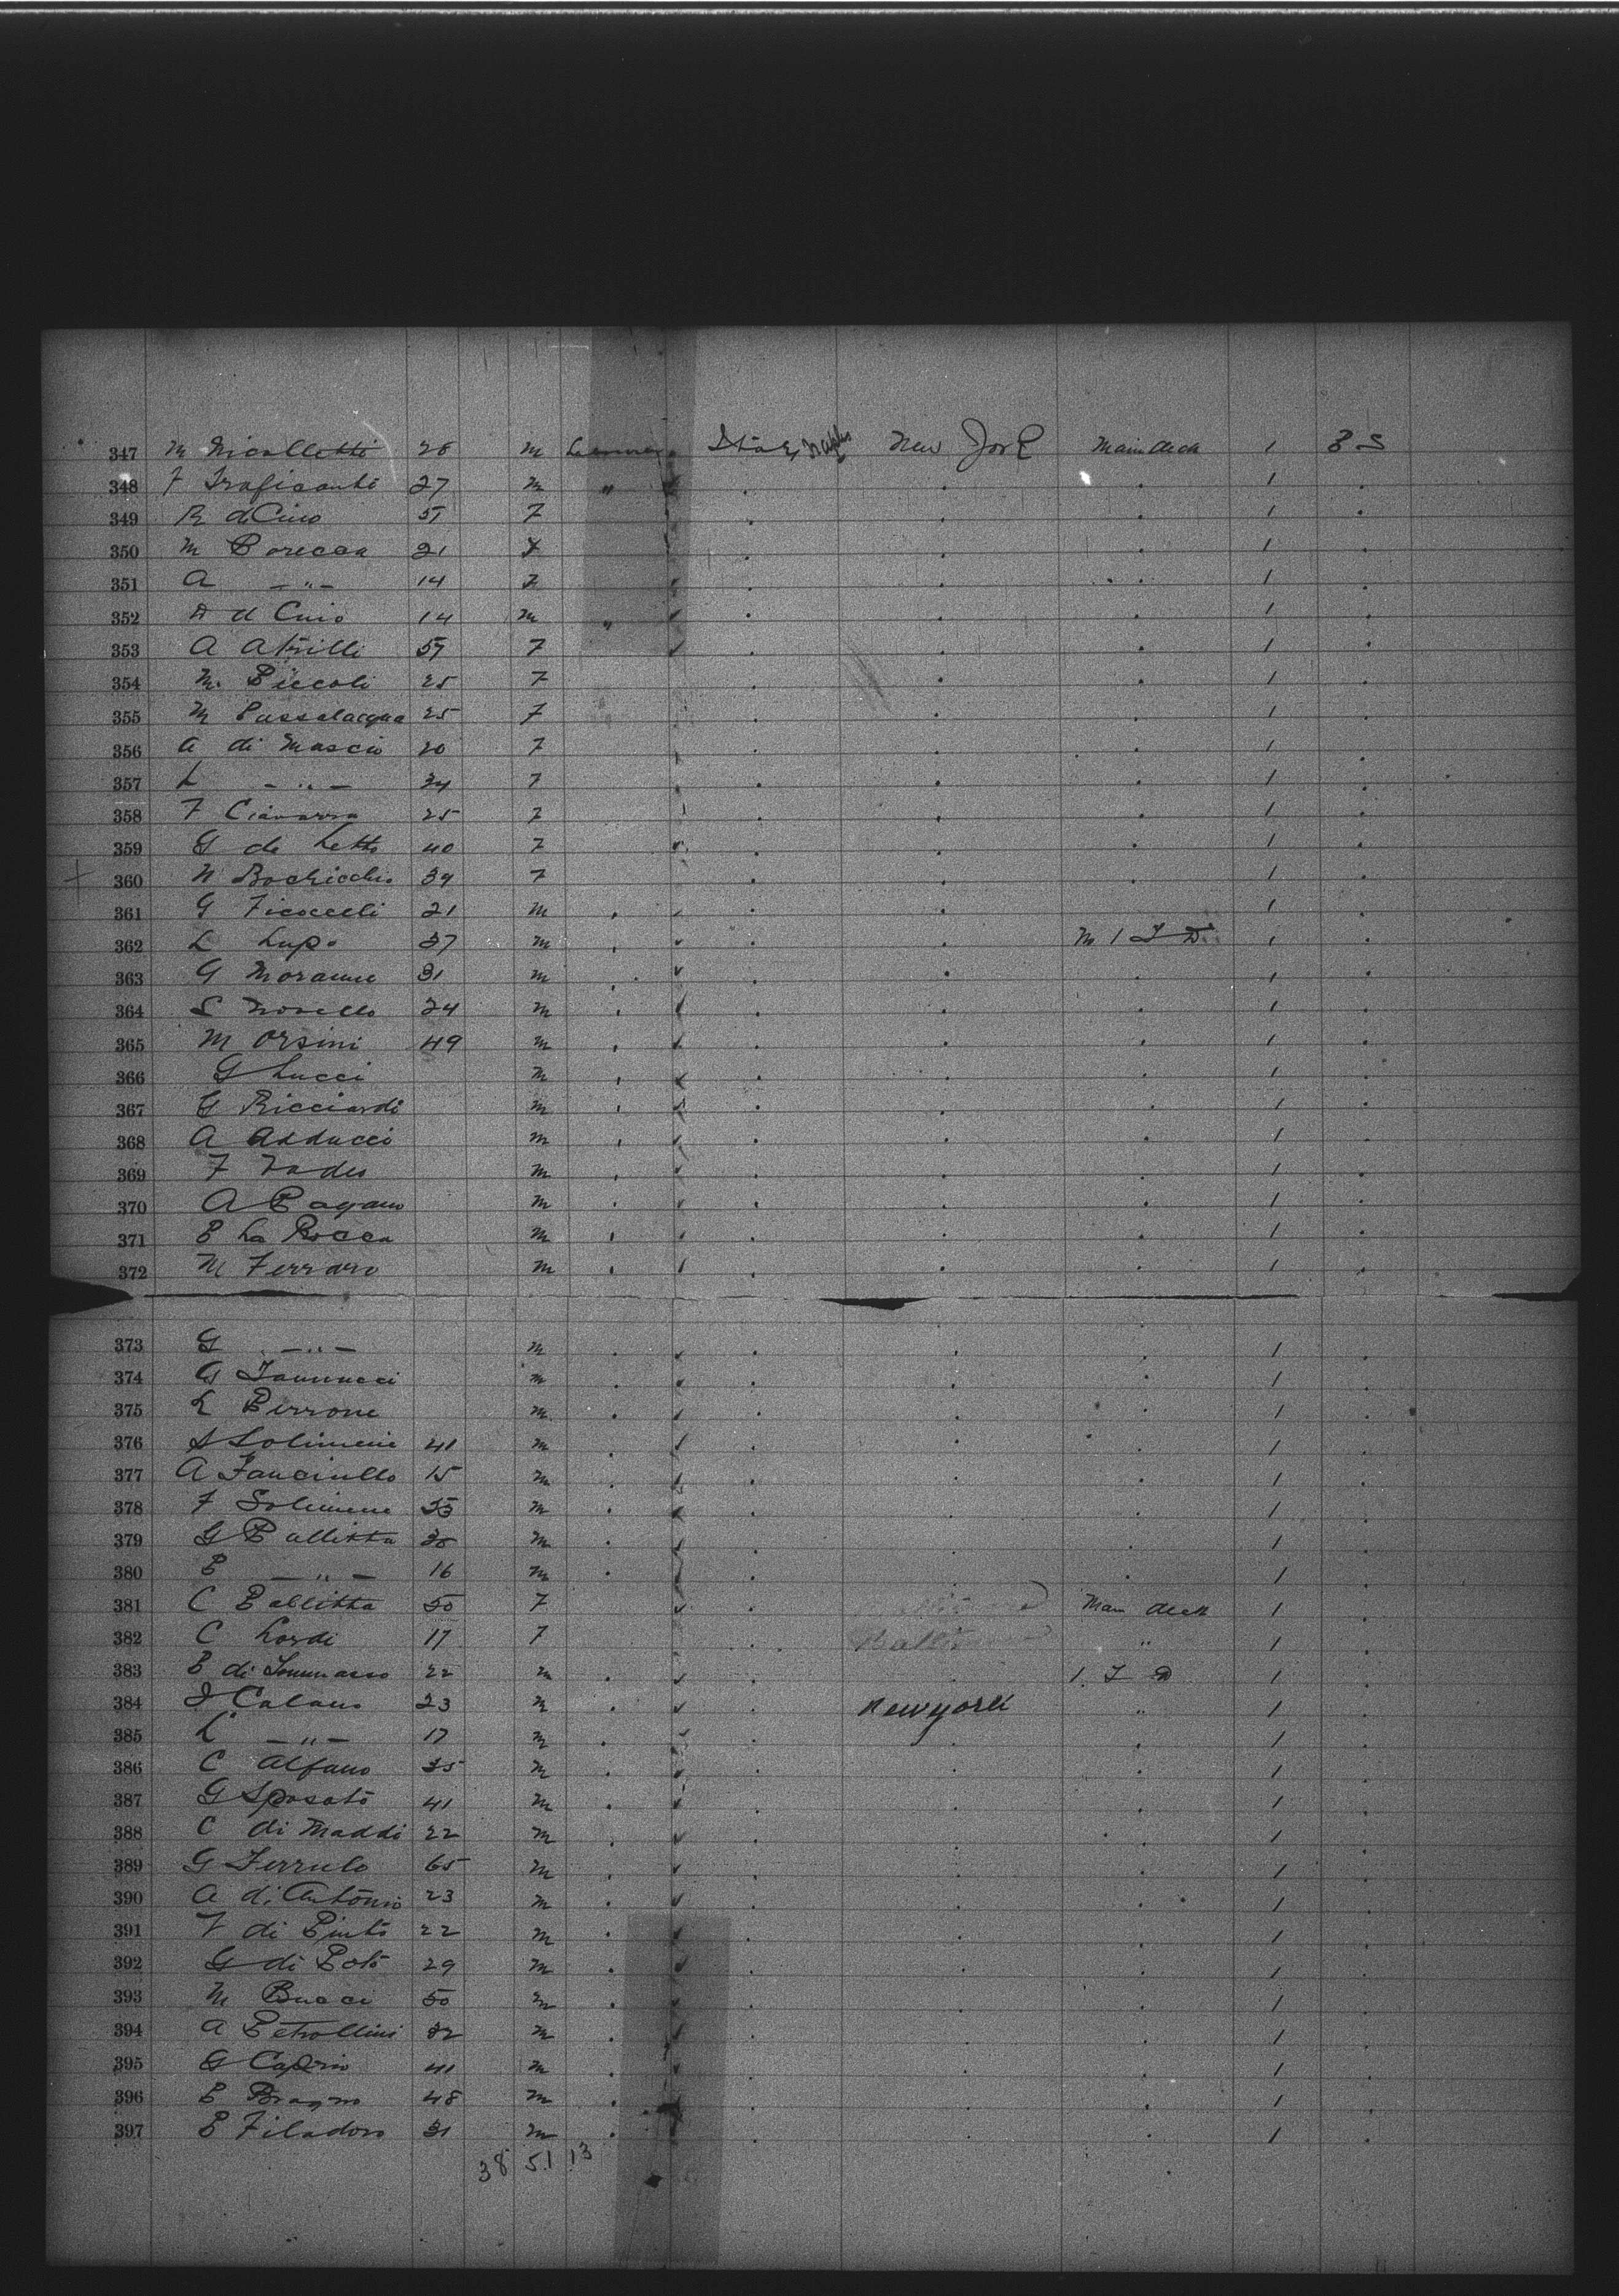 347 M Nicolletti 28 M Italy, Naples New York Main deck 1 B S
348 F Traficanti 27 m " 1
349 R di Cino 51 F 1
350 M Porecca 21 F 1
351 A — " — 14 F 1
352 D d Cino 14 m " 1
353 A Atrilli 59 F 1
354 M. Piccoli 25 F 1
355 M Passalacqua 25 F 1
356 A di Mascio 20 F 1
357 L — " — 34 F 1
358 F Ciavarra 25 F 1
359 G de Letto 40 F 1
360 N Bochicchio 39 F 1
361 G Ficocelli 21 M 1
362 L Lupo 37 m M 1 T D 1
363 G Moranne 31 m 1
364 S Novello 24 m 1
365 M Orsini 49 m 1
366 G Lucci m 1
367 G Ricciardi m 1
368 A Adducci m 1
369 F m 1
370 A Pagano m 1
371 P La Rocca m 1
372 M Ferraro m 1
373 G — " — m 1
374 G Iannucci m 1
375 L Perrone m 1
376 S Solimene 41 m 1
377 A Fanciullo 15 m 1
378 F Solimene 53 m 1
379 G Pallitta 38 m 1
380 P — " — 16 m 1
381 C Pallitta 50 F Main deck 1
382 C Lordi 17 F " 1
383 P di Tommasso 22 m 1 T D 1
384 I Calano 23 m New york " 1
385 L — " — 17 m 1
386 C Alfano 35 m 1
387 G Sposato 41 m 1
388 C di Maddi 22 m 1
389 G Ferrulo 65 m 1
390 A di Antonio 23 m 1
391 V di Pinto 22 m 1
392 G di Poto 29 m 1
393 M Bucci 50 m 1
394 A Petrollini 32 m 1
395 G Caprio 41 m 1
396 P Bragno 48 m 1
397 P Filadoro 31 m 1
38 51 13